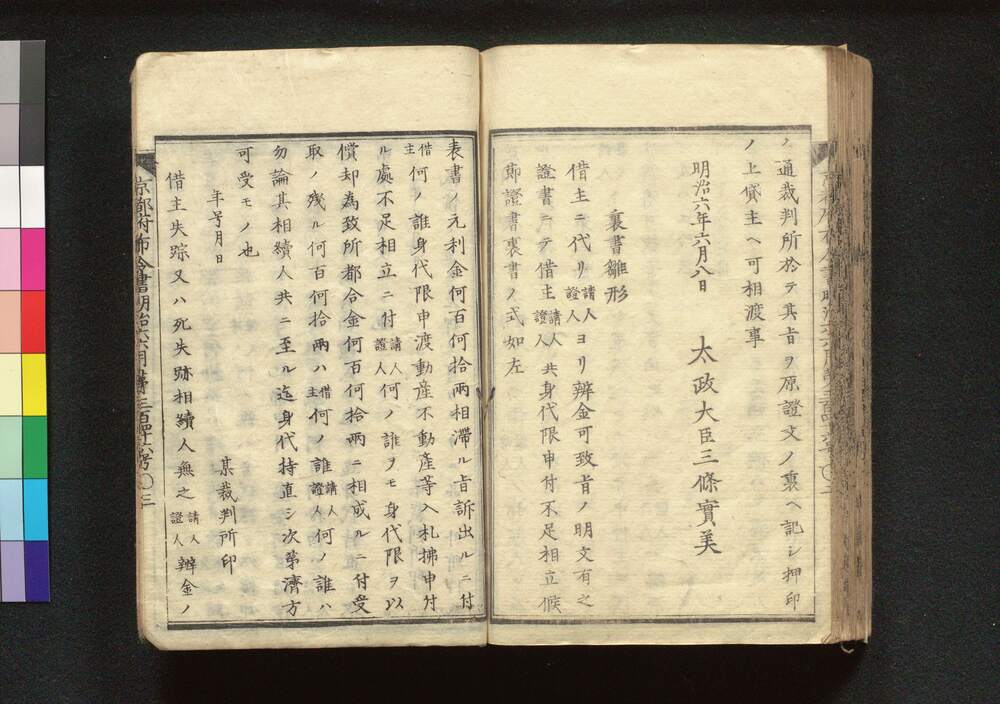 ノ通裁判所於テ其旨ヲ原證文ノ裏ヘ記シ押印
ノ上貸主ヘ可相渡事
明治六年六月八日
太政大臣三條實美
裏書雛形
借主ニ代リ請人證人ヨリ辨金可致旨ノ明文有之
證書ニテ借主請人證人共身代限申付不足相立候
節證書裏書ノ式如左
表書ノ元利金何百何拾兩相滯ル旨訴出ルニ付
借主何ノ誰身代限申渡動産不動産等入札拂申付
ル處不足相立ニ付請人證人何ノ誰ヲモ身代限ヲ以
償却為致所都合金何百何拾兩ニ相成ルニ付受
取ノ殘ル何百何拾兩ハ借主何ノ誰請人證人何ノ誰ハ
勿論其相續人共ニ至ル迄身代持直シ次第濟方
可受モノ也
年号月日
某裁判所印
借主失踪又ハ死失跡相續人無之請人證人辨金ノ
京都府布令書明治六六月第三百四十六号〇三